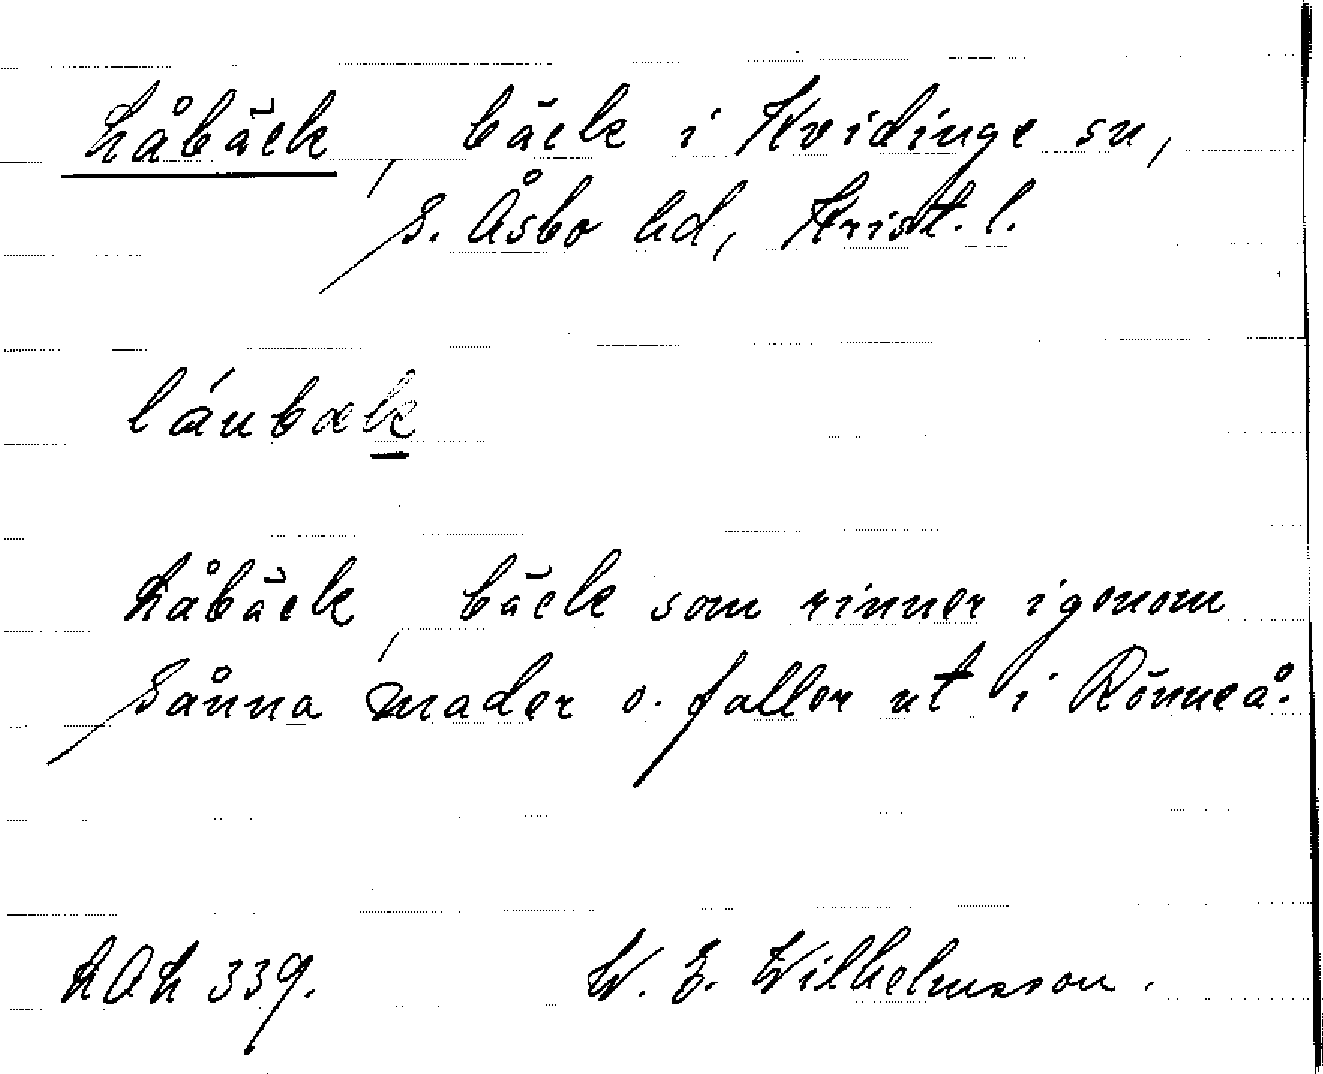 Låbäck, bäck i Kvidinge sn,
S. Åsbo hd, Krist. l.
láubæk
Låbäck, bäck som rinner igenom
Sånna mader o. faller ut i Rönneå.
LAL 339.
W. E. Wilhelmsson.